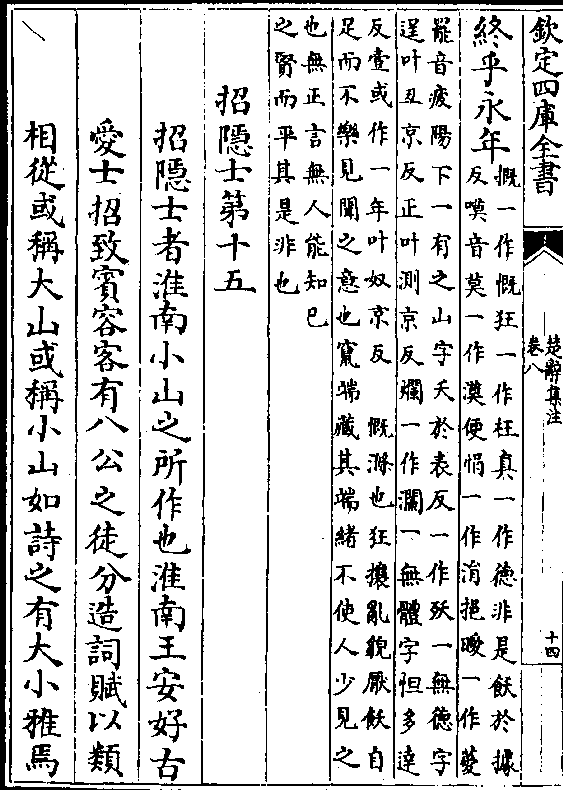 欽定四庫全書
楚辭集注
卷八
十四
終乎永年
慨一作慨狂一作枉真一作德非是飫於據
反嗼音莫一作漠便悁一作消挹曖一作薆
罷音疲陽下一有之山字夭於表反一作殀一無德字
逞叶丑京反正叶測京反爛一作瀾一無體字怛多達
反壹或作一年叶奴京反　慨滌也狂攘亂貌厭飫自
足而不樂見聞之意也竄端藏其端緒不使人少見之
也無正言無人能知已
之賢而平其是非也
招隱士第十五
招隱士者淮南小山之所作也淮南王安好古
愛士招致賓客客有八公之徒分造詞賦以類
相從或稱大山或稱小山如詩之有大小雅焉